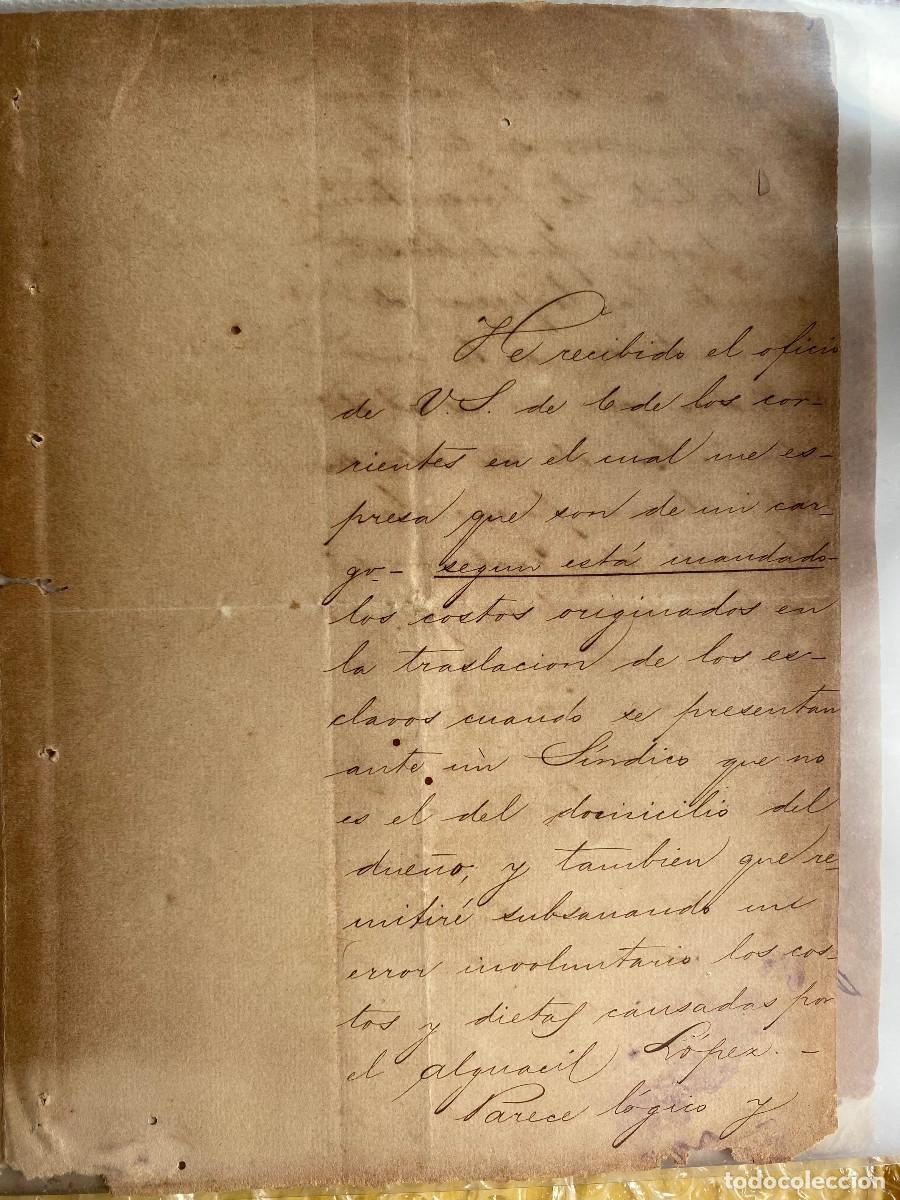 He recibido el oficio
de V.S. de 6 de los cor-
rientes en el cual me es-
presa que son de mi car-
go- segun está mandado-
los costos originados en
la traslacion de los es-
clavos cuando se presentan
ante un Síndico que no
es el del domicilio del
dueño, y tambien que re-
mitiré subsanando un
error involuntario los cos-
tos y dietas causadas por
el alguacil López. -
Parece lógico y
todocoleccion